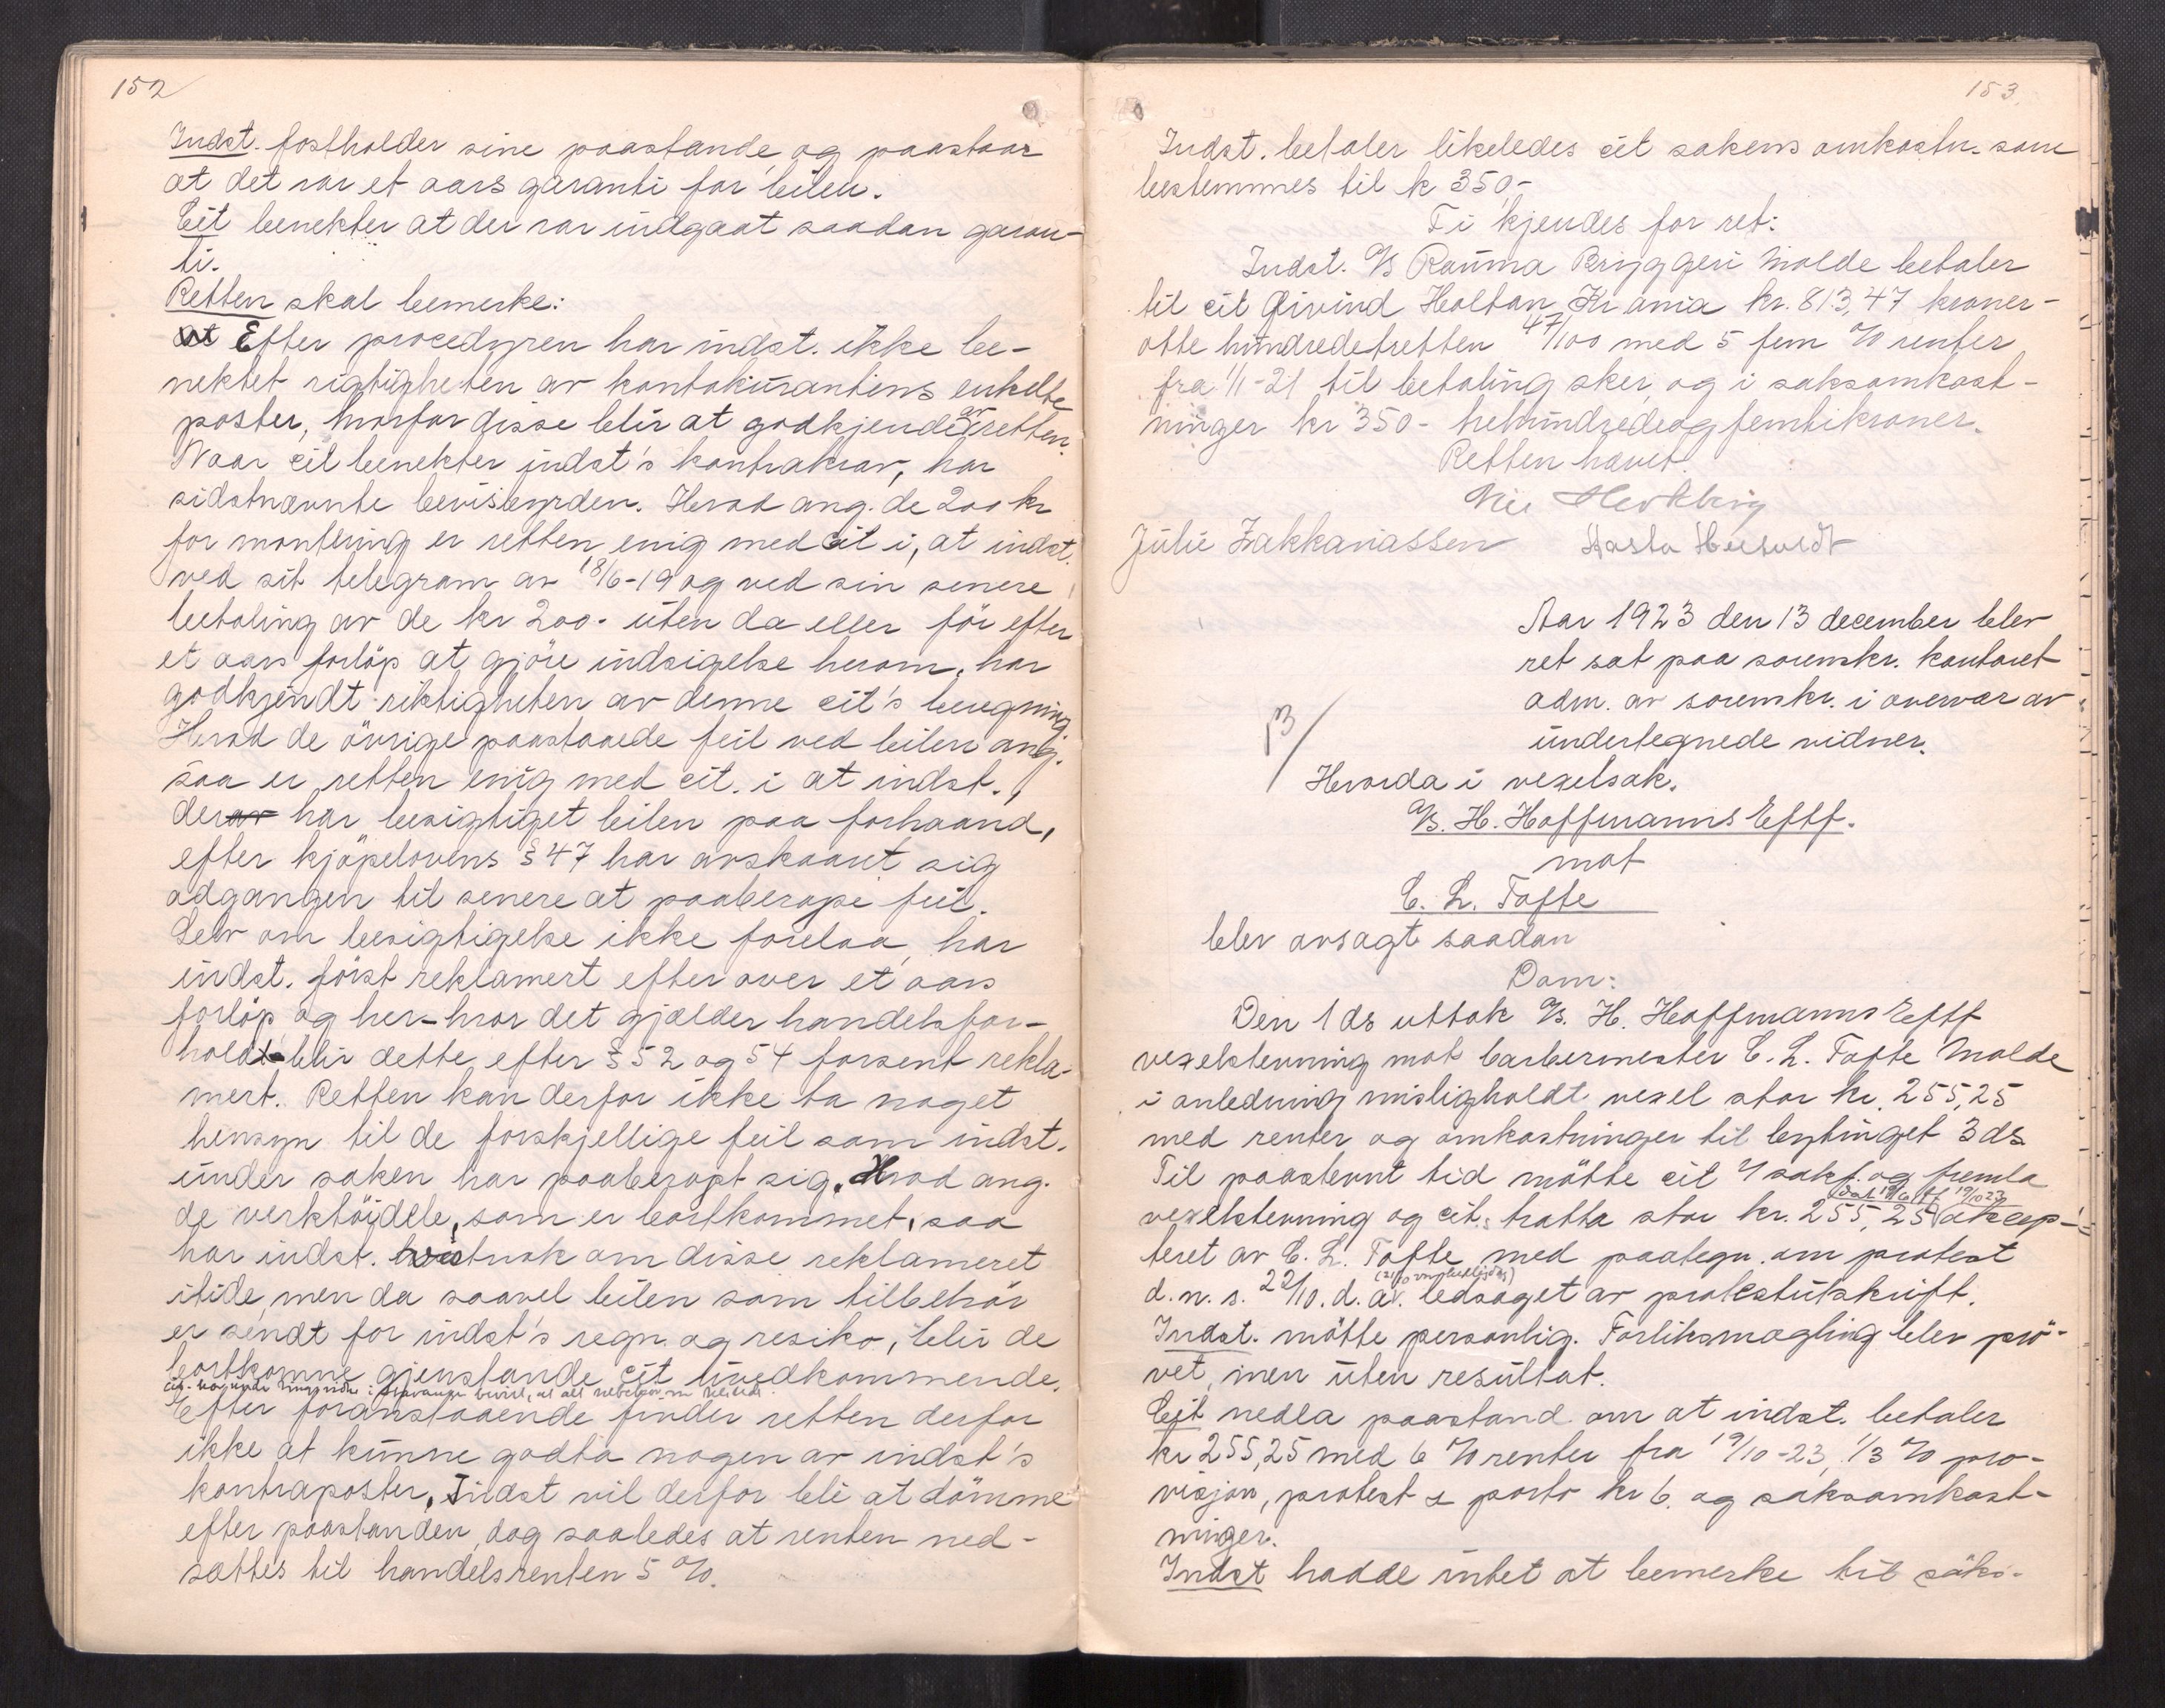 152
Indst. fastholder sine paastande og paastaar
at det var et aars garanti for bilen.
Cit benekter at der var indgaat saadan garan-
ti.
Retten skal bemerke:
Efter procedyren har indst. ikke be-
nektet rigtigheten av kontokurantens enkelte
poster, hvorfor disse blir at godkjende av retten.
Naar cit benekter indst's kontrakrav, har
sidstnævnte bevisbyrden. Hvad ang. de 200 kr
for montering er retten enig med cit i, at indst.
ved sit telegram av 18/6-19 og ved sin senere
betaling av de kr 200.- uten da eller för efter
et aars forlöp at gjöre indsigelse herom, har
godkjendt riktigheten av denne cit's beregning.
Hvad de övrige paastaaede feil ved bilen ang.
saa er retten enig med cit. i at indst.,
der har besigtiget bilen paa forhaand,
efter kjöpelovens § 47 har avskaaret sig
adgangen til senere at paaberope feil.
Selv om besigtigelse ikke forelaa, har
indst. först reklamert efter over et aars
forlöp og her-hvor det gjælder handelsfor-
hold-blir dette efter § 52 og 54 forsent rekla-
mert. Retten kan derfor ikke ta noget
hensyn til de forskjellige feil som indst.
under saken har paaberopt sig. Hvad ang.
de verktöidele, som er bortkommet, saa
har indst. vistnok om disse reklameret
itide, men da saavel bilen som tilbehör
er sendt for indst's regn. og resiko, blir de
bortkomne gjenstande cit uvedkommende.
Efter foranstaaende finder retten derfor
ikke at kunne godta nogen av indst's
kontraposter. Indst vil derfor bli at dömme
efter paastanden, dog saaledes at renten ned-
sættes til handelsrenten 5 %.
153
Indst. betaler likeledes cit sakens omkostn. som
bestemmes til k 350,-
Ti kjendes for ret:
Indst. A/S Rauma Bryggeri Molde betaler
til cit Øivind Holtan Kr ania kr. 813,47 kroner-
otte hundredetretten 47/100 med 5 fem % renter
fra 1/1-21 til betaling sker og i saksomkost-
ninger kr 350- trehundredeogfemtikroner.
Retten hævet.
Julie Zakkariassen
Aar 1923 den 13 december blev
ret sat paa sorenskr. kontoret
adm. av sorenskr. i overvær av
undertegnede vidner.
Hvorda i vexelsak.
A/S. H. Hoffmanns Eftf.
mot
C. L. Tofte
blev avsagt saadan
Dom:
Den 1 ds uttok A/S. H. Hoffmanns Eftf
vexelstevning mot barbermester C. L. Tofte Molde
i anledning misligholdt vexel stor kr. 255,25
med renter og omkostninger til bytinget 3 ds.
Til paastevnt tid mötte cit v/ sakf. og fremla
vexelstevning og cit.s tratta stor kr. 255,25 dat 19/6 ff 19/10 23 aksep-
teret av C. L. Tofte med paategn. om protest
d. n. s. 22/10. d. a. ledsaget av protestutskrift.
Indst. mötte personlig. Forliksmægling blev prö-
vet, men uten resultat.
Cit nedla paastand om at indst. betaler
kr 255,25 med 6 % renter fra 19/10-23, 1/3 % pro-
visjon, protest & porto kr 6. og saksomkost-
ninger.
Indst hadde intet at bemerke til söks-